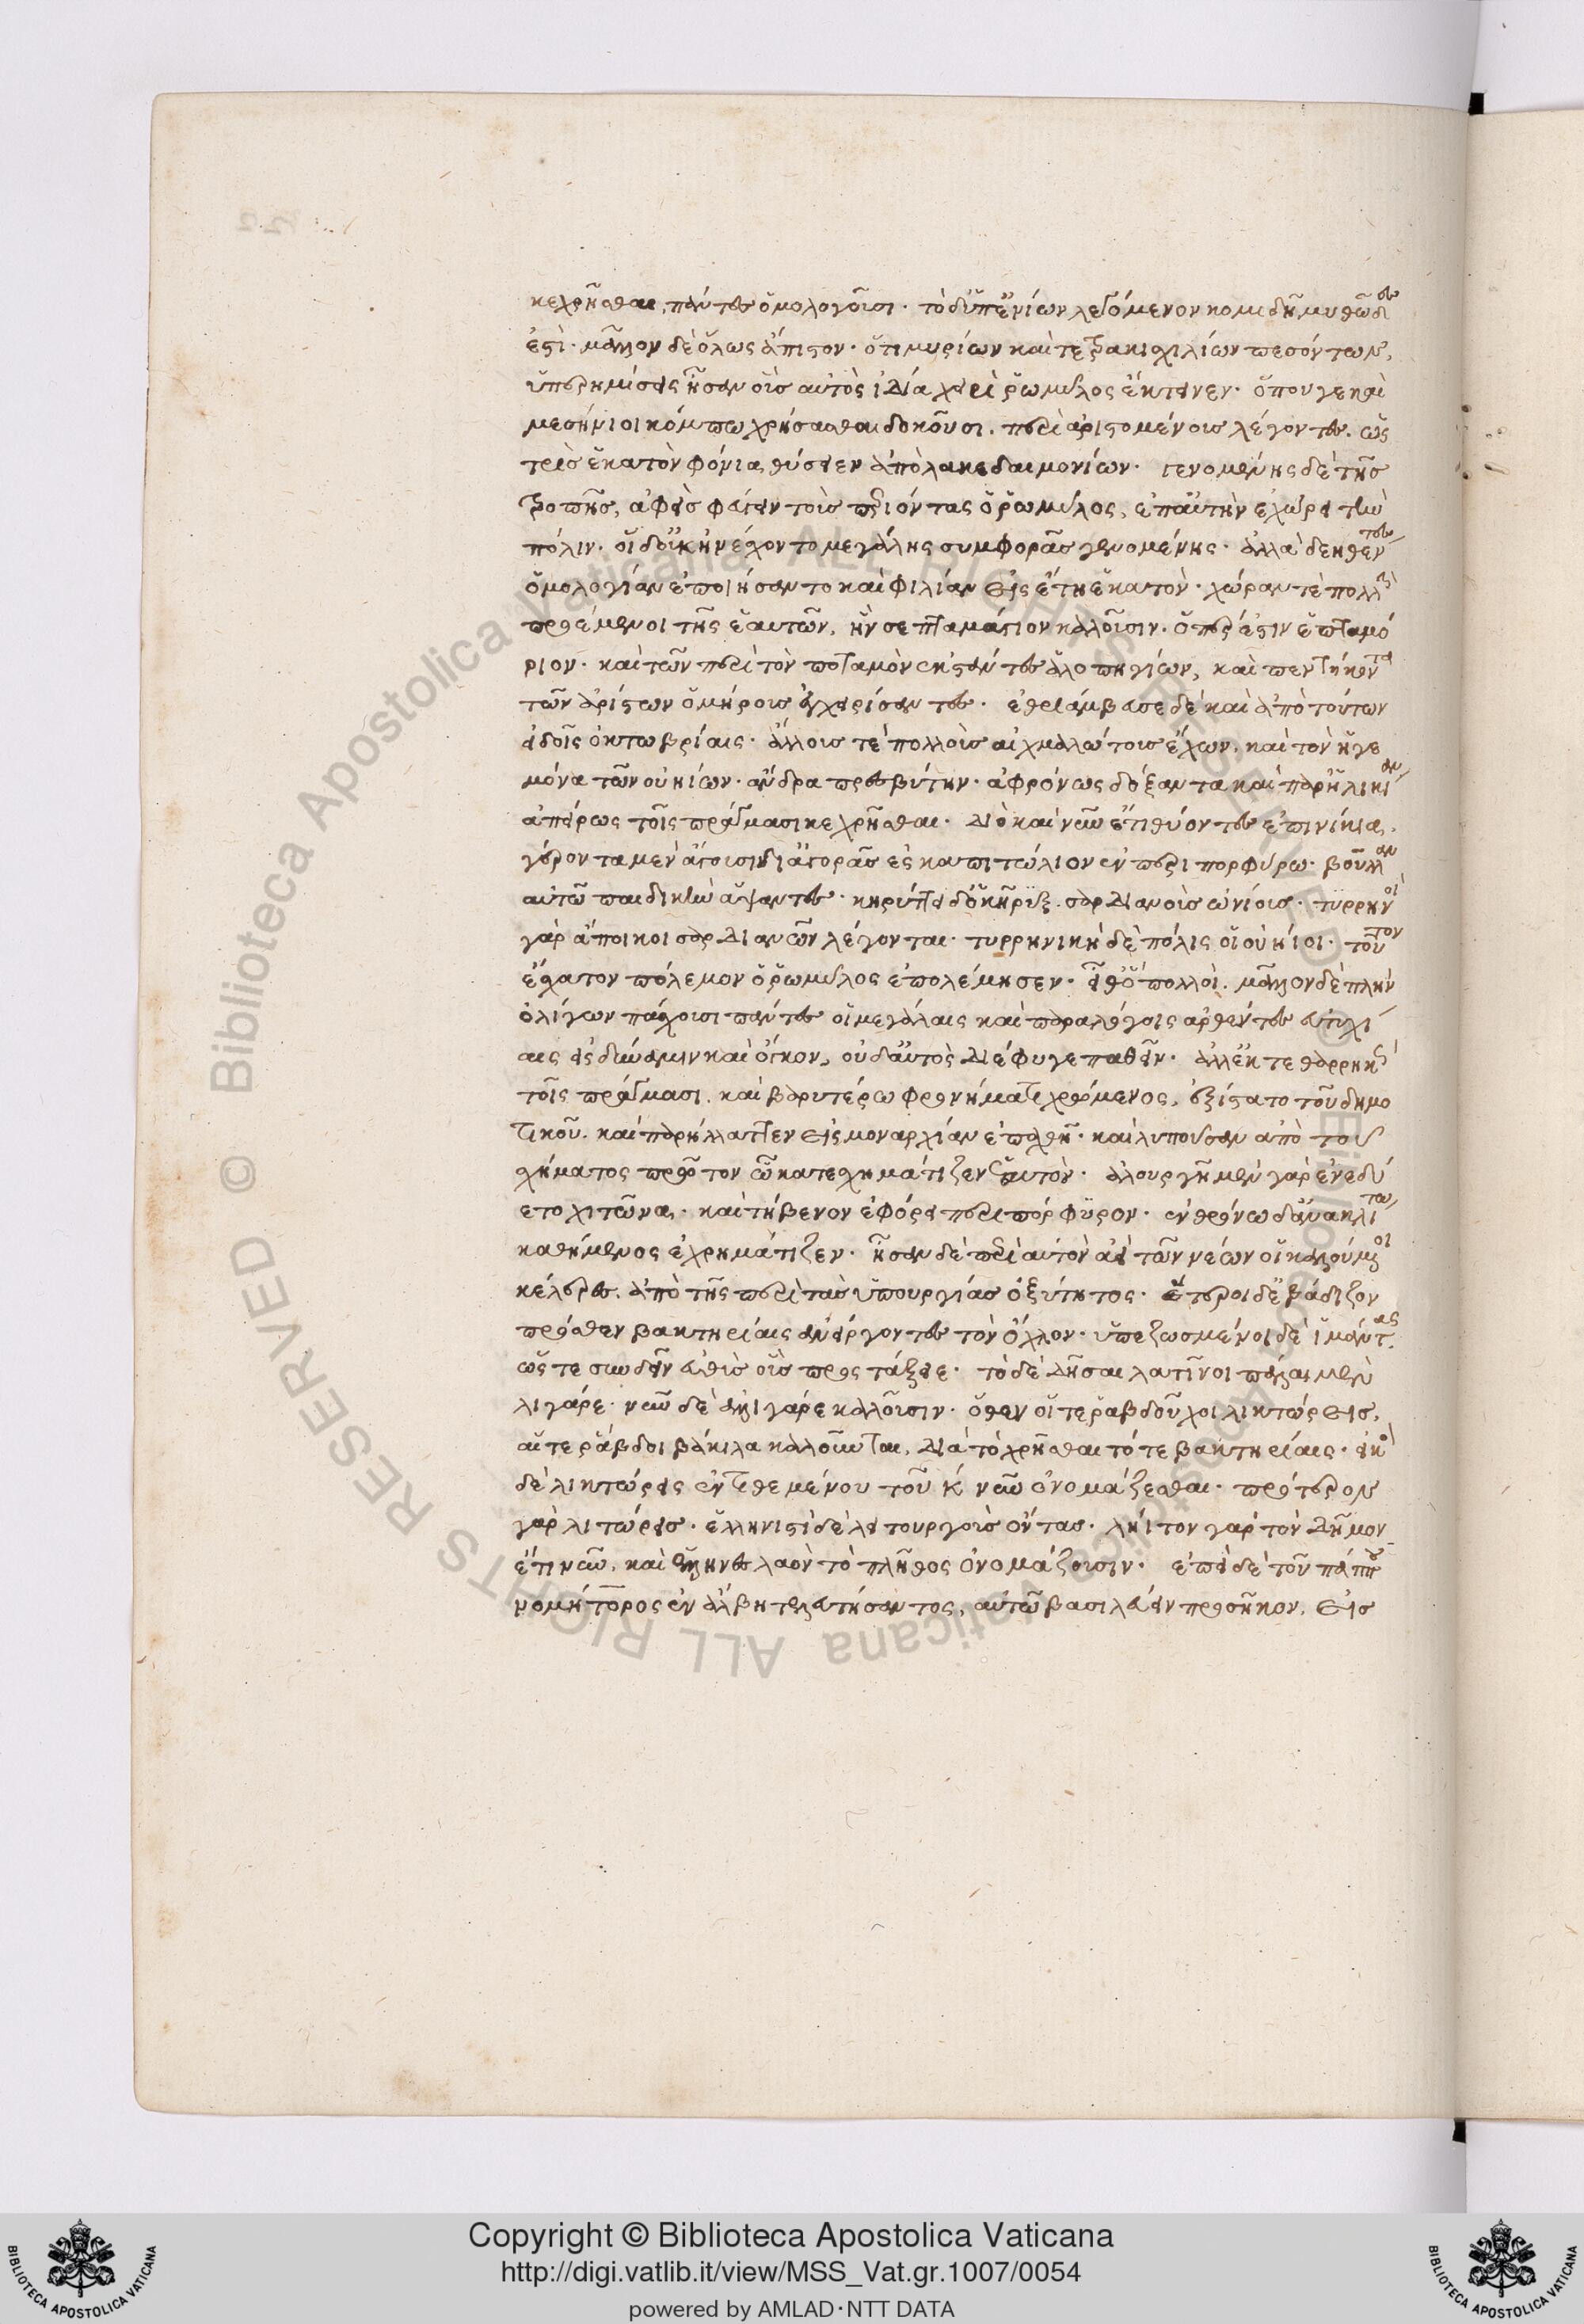 κεχρῆσθαι, πάντες ὁμολογοῦσι· τὸ δ' ὑπ' ἐνίων λεγόμενον κομιδῆ μυθῶδες
ἐστὶ· μᾶλλον δὲ ὅλως ἄπιστον· ὅτι μυρίων καὶ τετρακισχιλίων πεσόντων,
ὑπερημίσεις ἦσαν οὓς αὐτὸς ἰδία χειρὶ ῥωμύλος ἔκτεινεν· ὅπου γε καὶ
μεσήνιοι κόμπω χρήσασθαι δοκοῦσι. περὶ ἀριστομένους λέγοντες. ὡς
τρὶς ἑκατὸν φόνια θύσειεν ἀπὸ λακεδαιμονίων· γενομένης δὲ τῆς
τροπῆς, ἀφεὶς φεύγειν τοὺς περιόντας ὁ ῥωμύλος, ἐπ' αὐτὴν ἐχώρει τὴν
πόλιν· οἱ δ' οὐκ ἠνέσχοντο μεγάλης συμφορᾶς γενομένης· ἀλλὰ δεηθέντες
ὁμολογίαν ἐποιήσαντο καὶ φιλίαν εἰς ἔτη ἑκατὸν· χώραν τε πολλὴν
προέμενοι τῆς ἑαυτῶν, ἣν σεπταμάγιον καλοῦσιν. ὅπερ ἐστὶν ἑπταμό
ριον· καὶ τῶν περὶ τὸν ποταμὸν ἐκστάντες ἁλοπηγίων, καὶ πεντήκοντα
τῶν ἀρίστων ὁμήρους ἐγχειρίσαντες· ἐθριάμβευσε δὲ καὶ ἀπὸ τούτων
εἰδοῖς ὀκτωβρίαις· ἄλλους τε πολλοὺς αἰχμαλώτους ἔχων, καὶ τὸν ἡγε
μόνα τῶν οὐηίων· ἄνδρα πρεσβύτην· ἀφρόνως δόξαντα καὶ παρ' ἡλικίαν
ἀπείρως τοῖς πράγμασι κεχρῆσθαι· διὸ καὶ νῦν ἔτι θύοντες ἐπινίκια,
γέροντα μὲν ἄγουσιν δι' ἀγορᾶς εἰς καπιτώλιον ἐν περιπορφύρω· βοῦλλαν
αὐτῶ παιδικὴν ἅψαντες· κηρύττει δ' ὁ κῆρυξ. σαρδιανοὺς ὠνίους· τυρρηνοὶ
γὰρ ἄποικοι σαρδιανῶν λέγονται· τυρρηνικὴ δὲ πόλις οἱ οὐήιοι· τοῦτον
ἔσχατον πόλεμον ὁ ῥωμύλος ἐπολέμησεν· εἶθ' ὃ πολλοὶ. μᾶλλον δὲ πλὴν
ὀλίγων πάσχουσι πάντες οἱ μεγάλαις καὶ παραλόγοις ἀρθέντες εὐτυχί
αις εἰς δύναμιν καὶ ὄγκον, οὐδ' αὐτὸς διέφυγε παθεῖν· ἀλλ' ἐκτεθαρρηκὼς
τοῖς πράγμασι. καὶ βαρυτέρω φρονήματι χρώμενος, ἐξίστατο τοῦ δημο
τικοῦ. καὶ παρήλλαττεν εἰς μοναρχίαν ἐπαχθῆ· καὶ λυποῦσαν ἀπὸ τοῦ
σχήματος πρῶτον ὧ κατεσχημάτιζεν ἑαυτὸν· ἁλουργῆ μὲν γὰρ ἐνεδύ
ετο χιτῶνα· καὶ τήβεννον ἐφόρει περιπόρφυρον· ἐν θρόνω δ' ἀνακλίτω
καθήμενος ἐχρημάτιζεν· ἦσαν δὲ περὶ αὐτὸν ἀεὶ τῶν νέων οἱ καλούμενοι
κέλερες. ἀπὸ τῆς περὶ τὰς ὑπουργίας ὀξύτητος· ἕτεροι δ' ἐβάδιζον
πρόσθεν βακτηρίαις ἀνείργοντες τὸν ὄχλον· ὑπεζωσμένοι δὲ ἱμάντας.
ὥστε συνδεῖν εὐθὺς οὓς προστάξειε· τὸ δὲ δῆσαι λατῖνοι πάλαι μὲν
λιγάρε· νῦν δὲ ἀλλιγάρε καλοῦσιν· ὅθεν οἵ τε ῥαβδοῦχοι λικτώρεις,
αἵ τε ῥάβδοι βάκιλα καλοῦνται, διὰ τὸ χρῆσθαι τότε βακτηρίαις· εἰκὸς
δὲ λικτώρεις ἐντιθεμένου τοῦ κ νῦν ὀνομάζεσθαι· πρότερον
γὰρ λιτώρεις· ἑλληνιστὶ δὲ λειτουργοὺς ὄντας· λήιτον γὰρ τὸν δῆμον
ἔτι νῦν, καὶ ἕλληνες λαὸν τὸ πλῆθος ὀνομάζουσιν· ἐπεὶ δὲ τοῦ πάππου
νομήτορος ἐν ἄλβη τελευτήσαντος, αὐτῶ βασιλεύειν προσῆκον, εἰς
Copyright © Biblioteca Apostolica Vaticana
http://digi.vatlib.it/view/MSS_Vat.gr.1007/0054
powered by AMLAD·NTT DATA